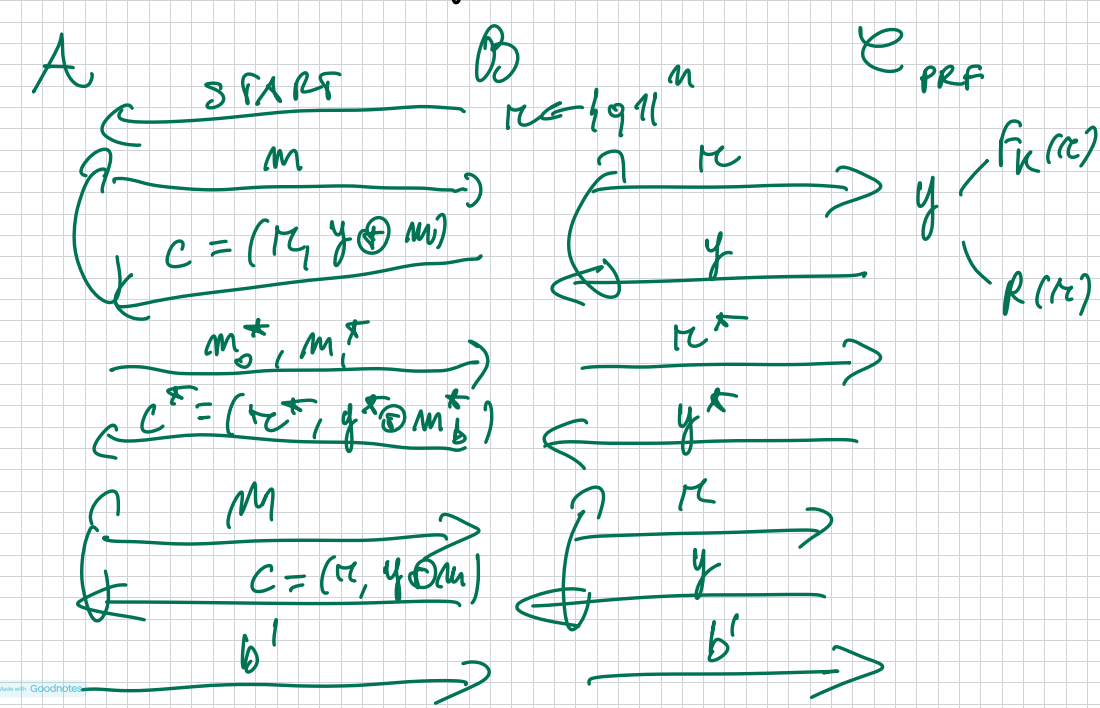 A B C PRF
START r ← {0,1}^n
m r F_K(r)
y
c = (r, y ⊕ m) y R(r)
m_0^*, m_1^* r^*
c^* = (r^*, y^* ⊕ m_b^*) y^*
M r
c = (r, y ⊕ m) y
b' b'
Made with Goodnotes